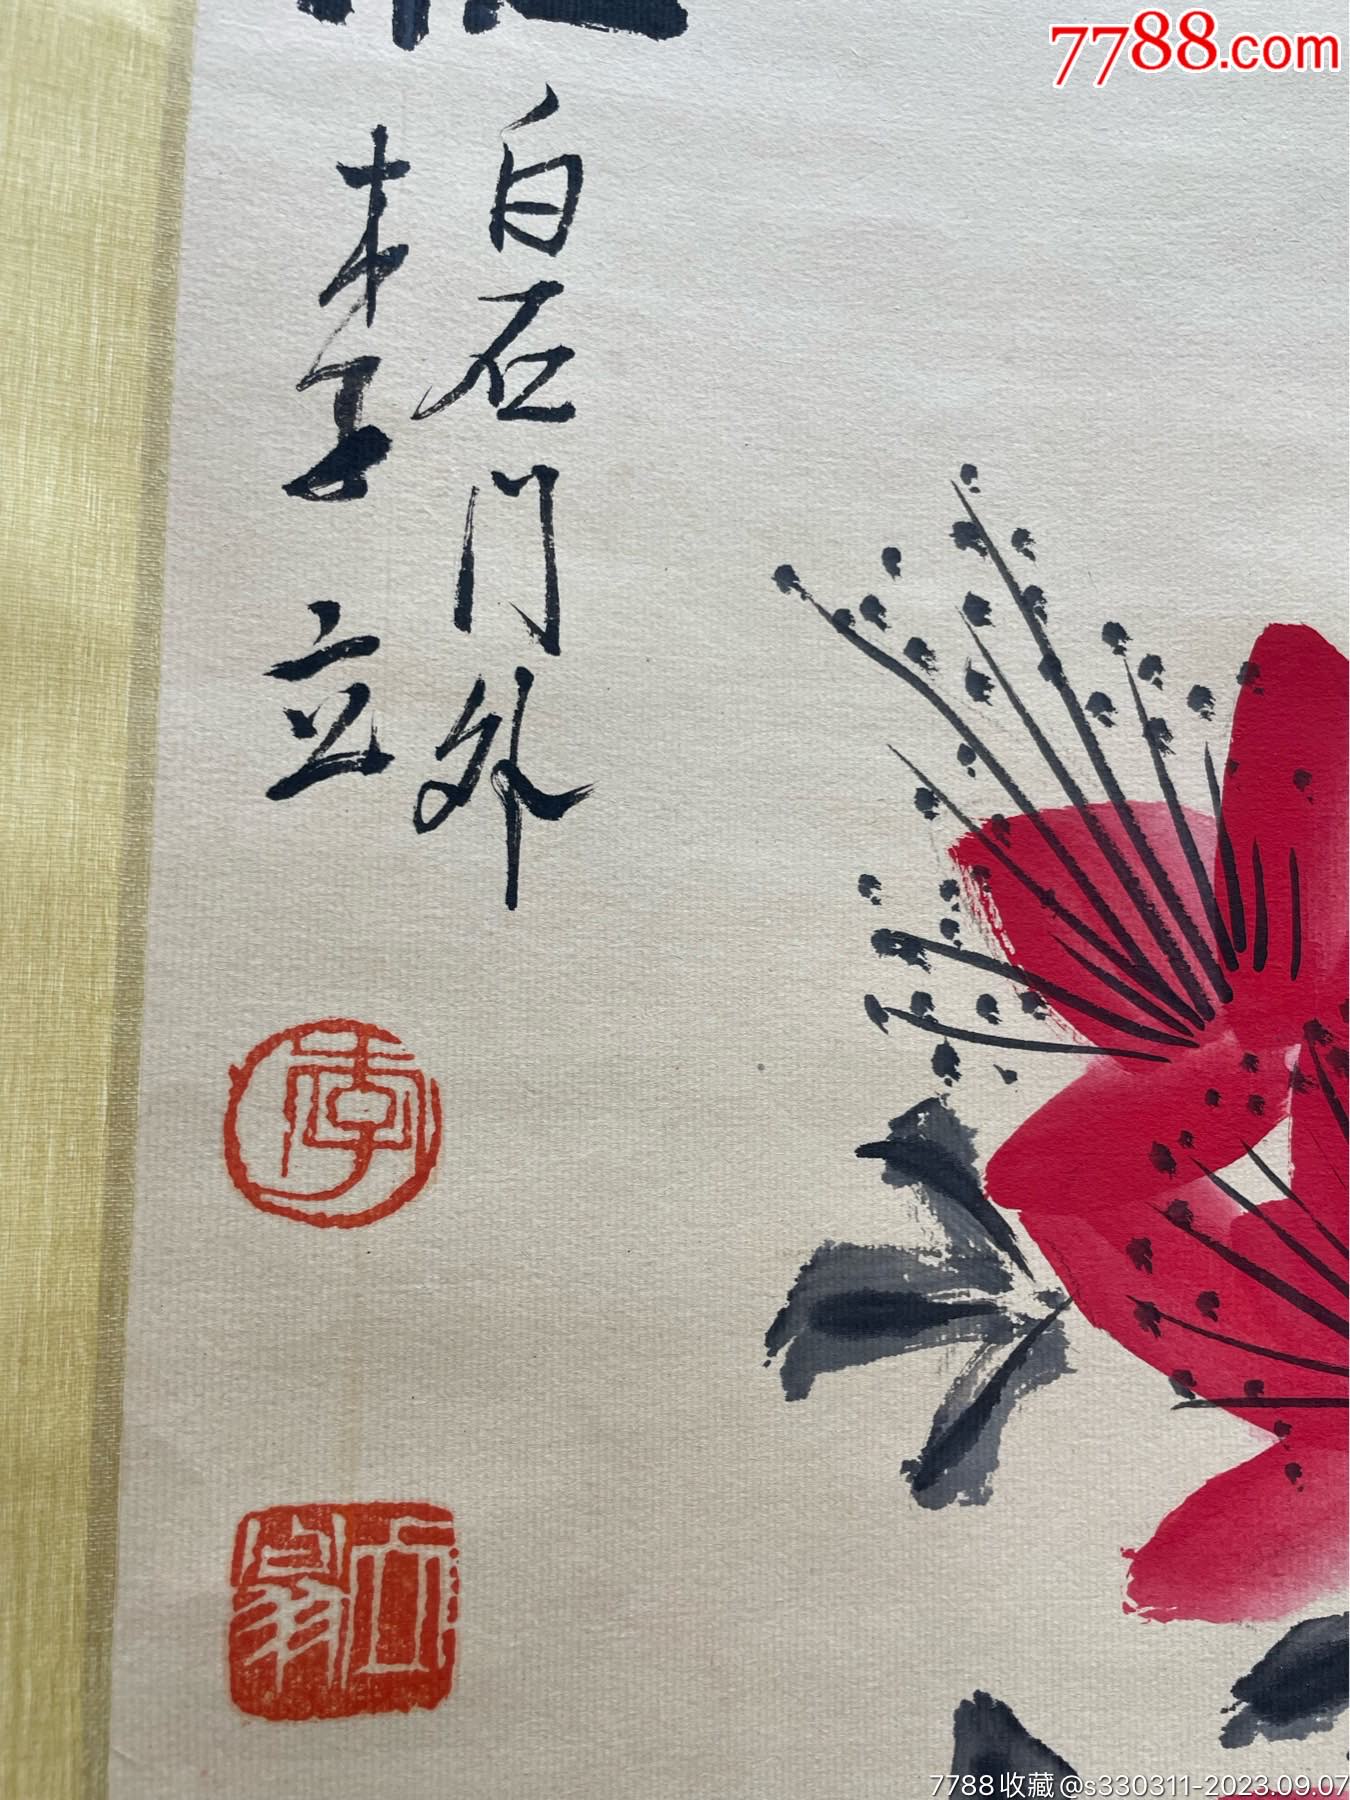 7788.com
白石门外
李立
李
立翁
7788收藏@s330311-2023.09.07